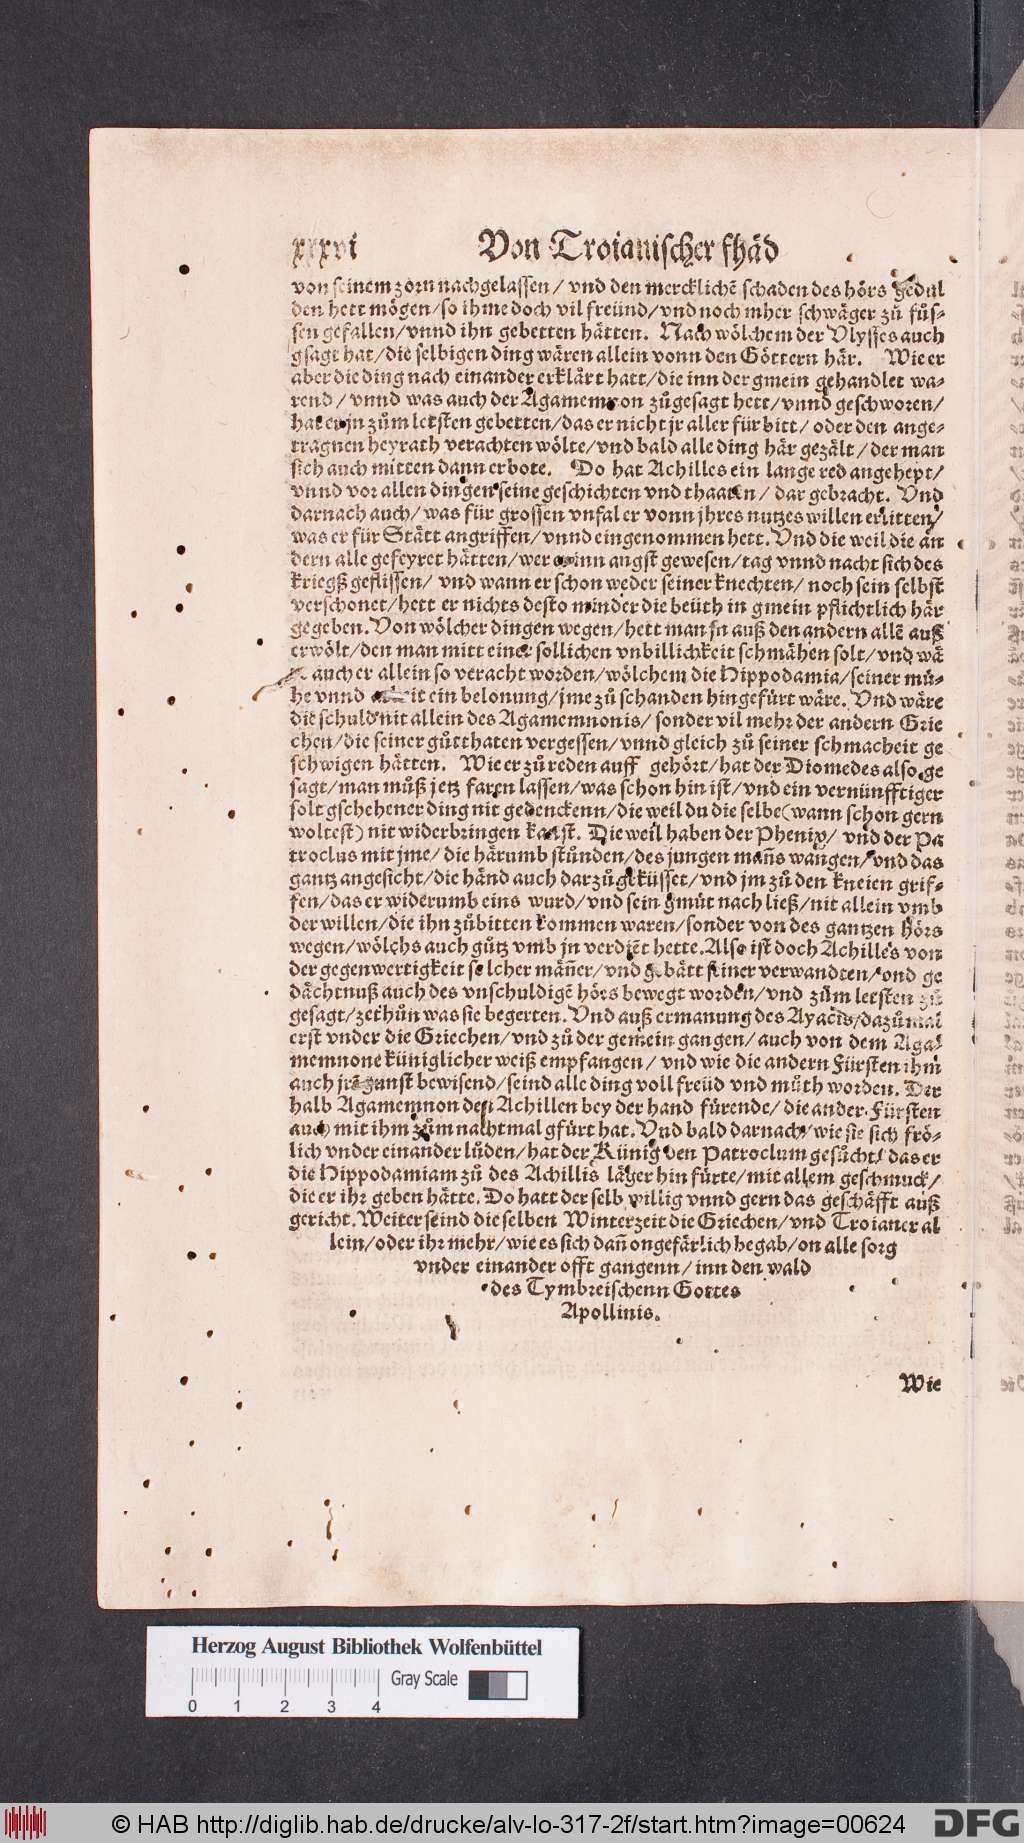 xxxvi Von Troianischer fhäd
von seinem zorn nachgelassen / vnd den mercklichē schaden des hörs gedul
den hett mögen/so ihme doch vil freünd/vnd noch mher schwäger zů füs-
sen gefallen/vnnd ihn gebetten hätten. Nach wölchem der Vlysses auch
gsagt hat/die selbigen ding wären allein vonn den Göttern här. Wie er
aber die ding nach einander erklärt hatt/die inn der gmein gehandlet wa-
rend / vnnd was auch der Agamemnon zůgesagt hett/vnnd geschworen/
hat er jn zům letsten gebetten/das er nicht jr aller für bitt/ oder den ange-
tragnen heyrath verachten wölte/vnd bald alle ding här gezält/der man
sich auch mitten dann erbote. Do hat Achilles ein lange red angehept/
vnnd vor allen dingen seine geschichten vnd thaaten/ dar gebracht. Vnd
darnach auch/was für grossen vnfal er vonn jhres nutzes willen erlitten/
was er für Stätt angriffen/vnnd eingenommen hett. Vnd die weil die an
dern alle gefeyret hätten/wer er inn angst gewesen/tag vnnd nacht sich des
kriegß geflissen/ vnd wann er schon weder seiner knechten/noch sein selbst
verschonet/hett er nichts desto minder die beüth in gmein pflichtlich här
gegeben. Von wölcher dingen wegen/hett man jn auß den andern allē auß
erwölt/den man mitt einer sollichen vnbillichkeit schmähen solt/vnd wä
auch er allein so veracht worden/wölchem die Hippodamia/seiner mü-
he vnnd ein belonung/jme zů schanden hingefürt wäre. Vnd wäre
die schuld nit allein des Agamemnonis/ sonder vil mehr der andern Grie
chen/die seiner gůtthaten vergessen/vnnd gleich zů seiner schmacheit ge
schwigen hätten. Wie er zů reden auff gehört/hat der Diomedes also ge
sagt/man můß jetz faren lassen/was schon hin ist/vnd ein vernünfftiger
solt gschehener ding nit gedenckenn/die weil du die selbe(wann schon gern
woltest) nit widerbringen kanst. Die weil haben der Phenix/ vnd der Pa
troclus mit jme/ die härumb stůnden/des jungen mañs wangen/vnd das
gantz angesicht/die händ auch darzů geküsset/vnd jm zů den kneien grif-
fen/das er widerumb eins wurd/vnd sein gmüt nach ließ/nit allein vmb
der willen/die ihn zůbitten kommen waren/sonder von des gantzen hörs
wegen/wölchs auch gůtz vmb jn verdiēt hette. Also ist doch Achilles von
der gegenwertigkeit solcher mäñer/vnd gebätt seiner verwandten/ond ge
dächtnuß auch des vnschuldigē hörs bewegt worden/vnd zům letsten zů
gesagt/zethůn was sie begerten. Vnd auß ermanung des Ayacis/dazůmal
erst vnder die Griechen/vnd zů der gemein gangen/auch von dem Aga-
memnone küniglicher weiß empfangen / vnd wie die andern Fürsten ihm
auch jrē gunst bewisend/seind alle ding voll freüd vnd můth worden. Der
halb Agamemnon den Achillen bey der hand fürende/ die ander Fürsten
auch mit ihm zům nachtmal gfürt hat. Vnd bald darnach/wie sie sich frö-
lich vnder einander lůden/hat der Künig den Patroclum gesůcht/ das er
die Hippodamiam zů des Achillis läger hin fürte/mit allem geschmuck/
die er ihr geben hätte. Do hatt der selb willig vnnd gern das geschäfft auß
gericht. Weiter seind die selben Winterzeit die Griechen/vnd Troianer al
lein/oder ihr mehr/wie es sich dañ ongefärlich begab/on alle sorg
vnder einander offt gangenn/inn den wald
des Tymbreischenn Gottes
Apollinis.
Wie
Herzog August Bibliothek Wolfenbüttel
Gray Scale
0 1 2 3 4
© HAB http://diglib.hab.de/drucke/alv-lo-317-2f/start.htm?image=00624 DFG